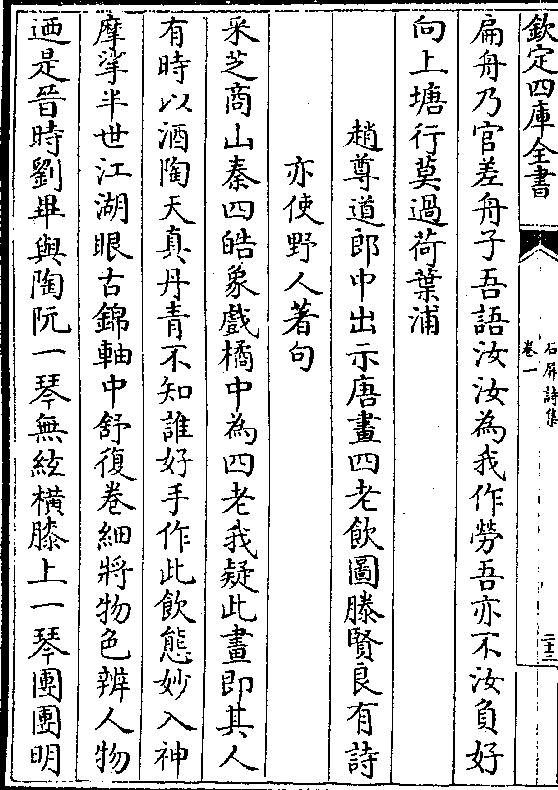 欽定四庫全書
石屏詩集
卷一
二十三
扁舟乃官差舟子吾語汝汝為我作勞吾亦不汝負好
向上塘行莫過荷葉浦
趙尊道郎中出示唐畫四老飲圖滕賢良有詩
亦使野人著句
采芝商山秦四皓象戲橘中為四老我疑此畫即其人
有時以酒陶天真丹青不知誰好手作此飲態妙入神
摩挲半世江湖眼古錦軸中舒復卷細將物色辨人物
迺是晉時劉畢與陶阮一琴無絃橫膝上一琴團團明